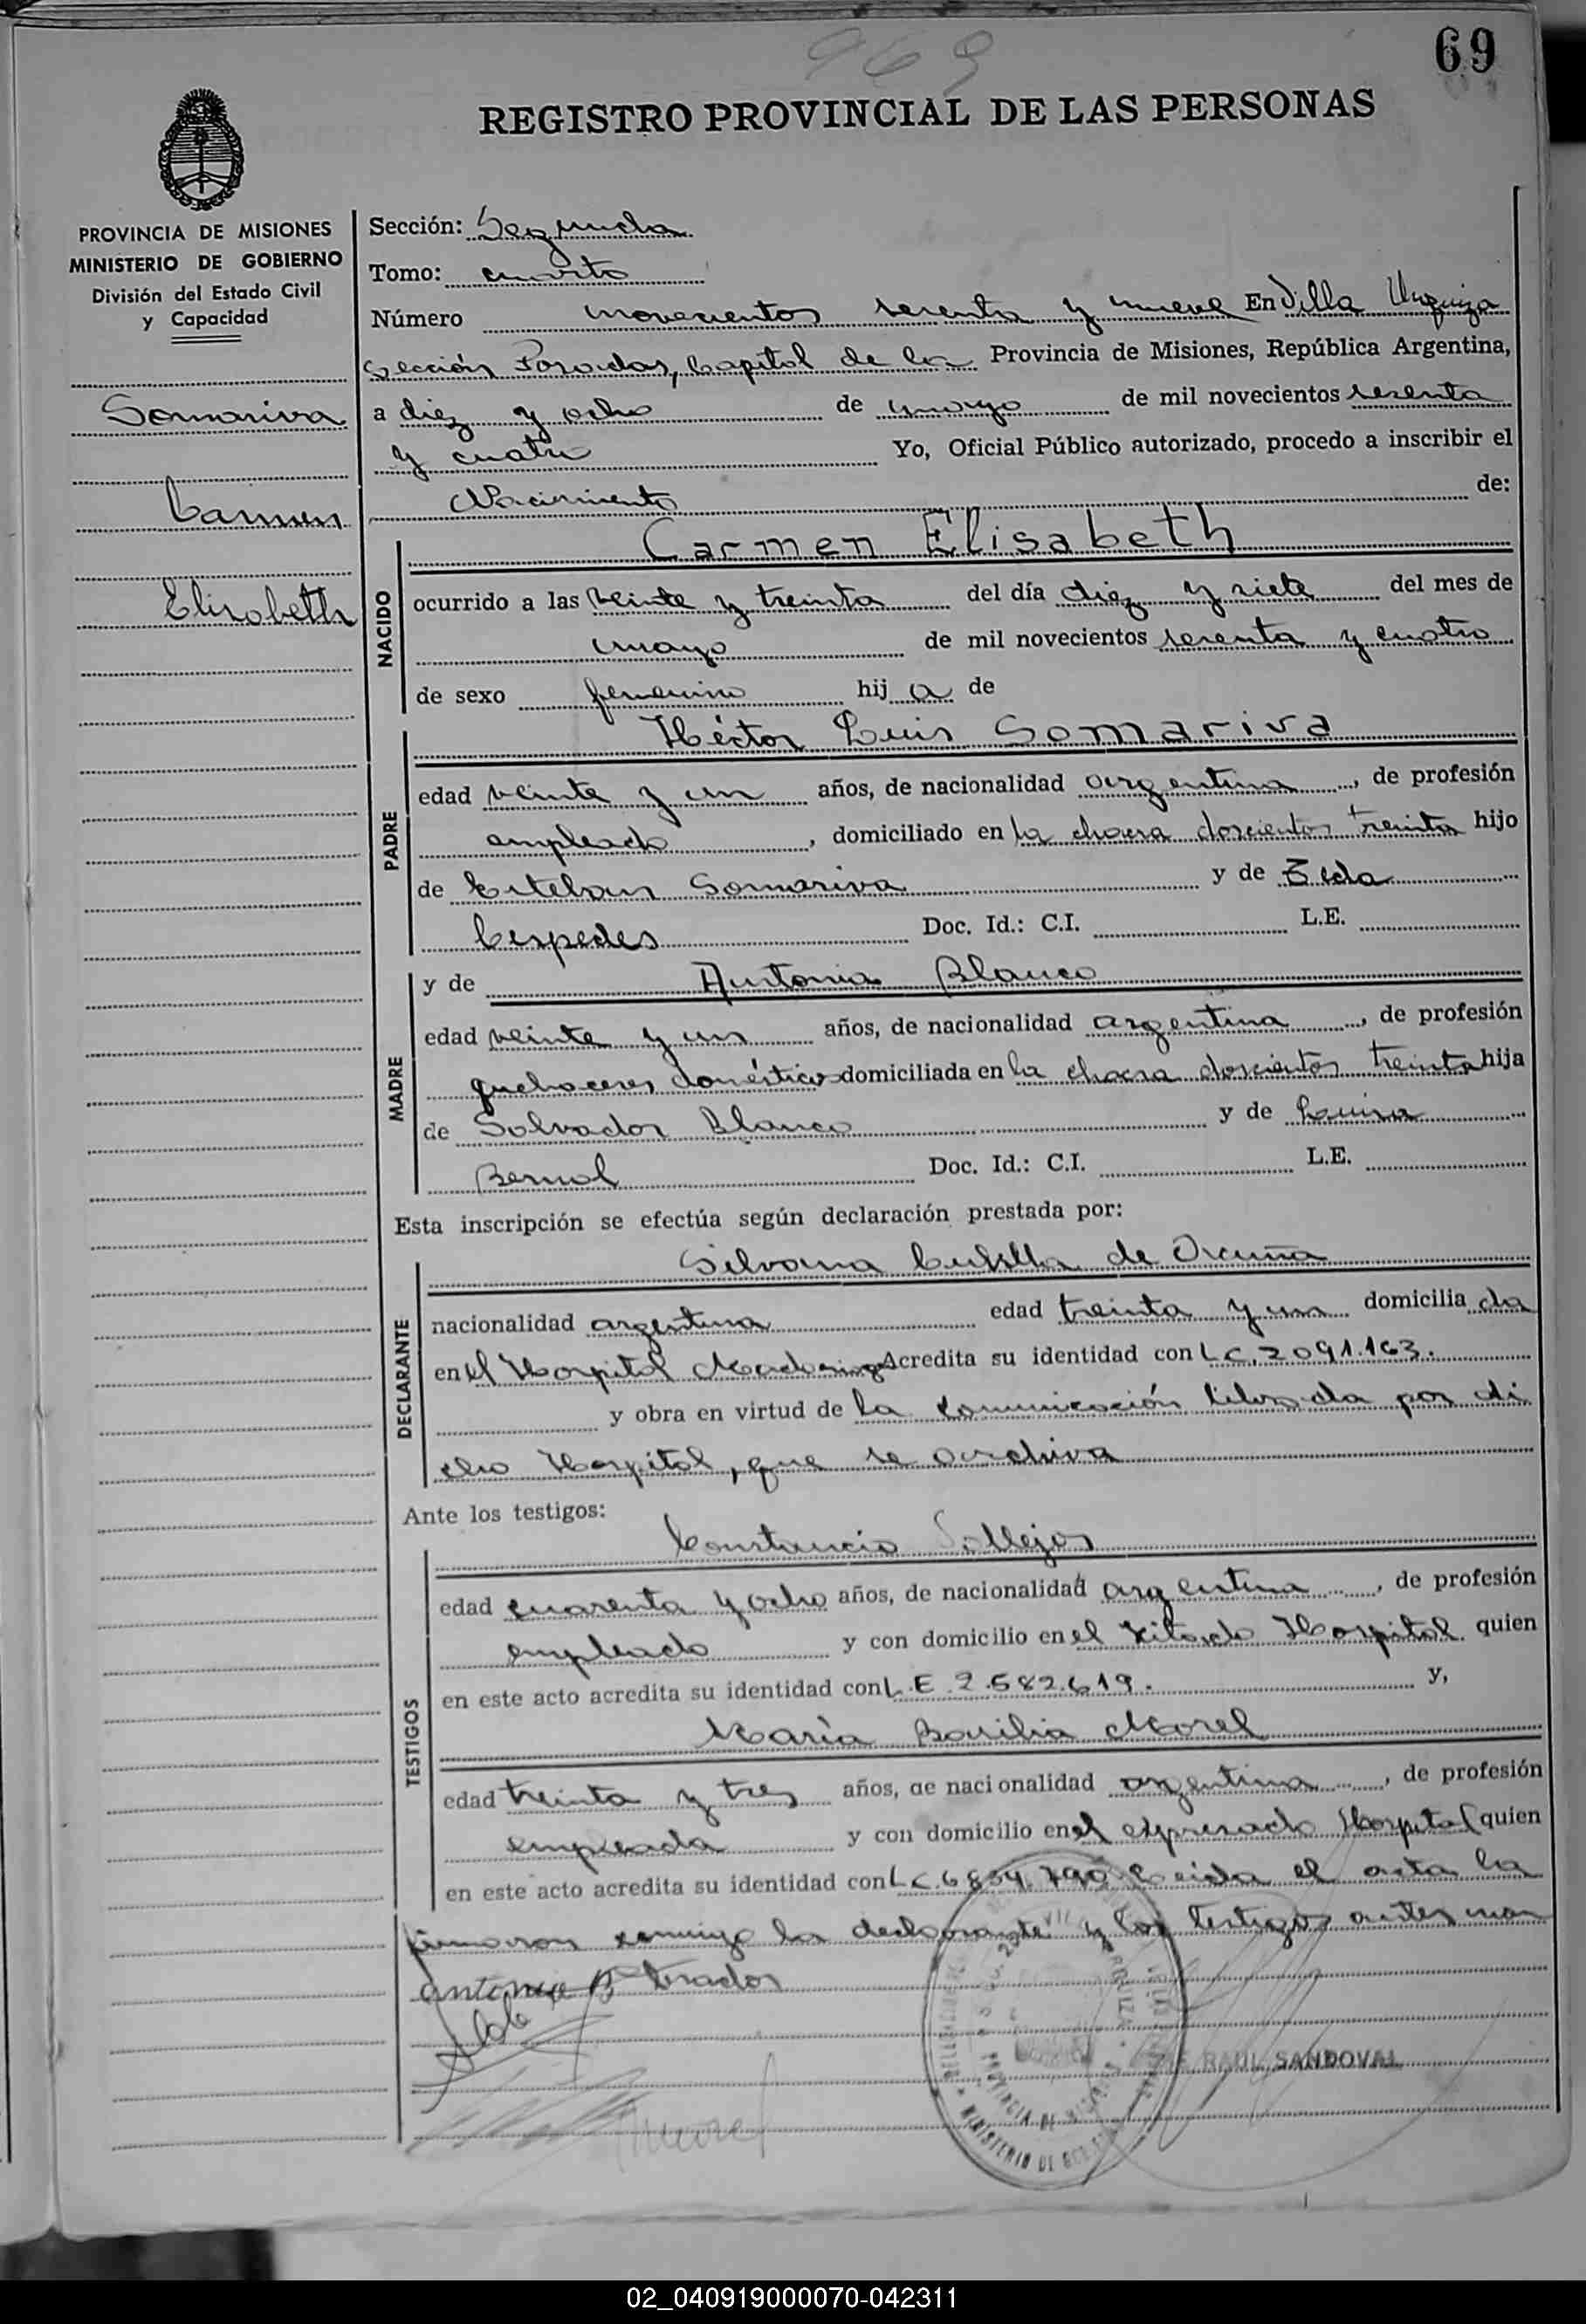 969
69
REGISTRO PROVINCIAL DE LAS PERSONAS
PROVINCIA DE MISIONES
MINISTERIO DE GOBIERNO
División del Estado Civil
y Capacidad
Somariva
Carmen
Elisabeth
Sección: Segunda
Tomo: cuarto
Número novecientos sesenta y nueve En Villa Urquiza
sección Posadas, Capital de la Provincia de Misiones, República Argentina,
a diez y ocho de mayo de mil novecientos sesenta
y cuatro Yo, Oficial Público autorizado, procedo a inscribir el
Nacimiento de:
NACIDO
Carmen Elisabeth
ocurrido a las veinte y treinta del día diez y siete del mes de
mayo de mil novecientos sesenta y cuatro
de sexo femenino hija de
PADRE
Héctor Luis Somariva
edad veinte y un años, de nacionalidad argentina, de profesión
empleado, domiciliado en la chacra doscientos treinta hijo
de Esteban Somariva y de
Cespedes Doc. Id.: C.I. L.E.
MADRE
y de Antonia Blanco
edad veinte y un años, de nacionalidad argentina, de profesión
quehaceres domésticos domiciliada en la chacra doscientos treinta hija
de Salvador Blanco y de Luisa
Bernal Doc. Id.: C.I. L.E.
Esta inscripción se efectúa según declaración prestada por:
DECLARANTE
Silvana de
nacionalidad argentina edad treinta y un domiciliada
en el Hospital Madariaga Acredita su identidad con L C. 2091.163.
y obra en virtud de la comunicación librada por di
cho Hospital, que se archiva
Ante los testigos:
TESTIGOS
Constancio Vallejos
edad cuarenta y ocho años, de nacionalidad argentina, de profesión
empleado y con domicilio en el citado Hospital quien
en este acto acredita su identidad con L.E. 2.582.619. y,
María Basilia Morel
edad treinta y tres años, de nacionalidad argentina, de profesión
empleada y con domicilio en el expresado Hospital quien
en este acto acredita su identidad con L C. 6854.790 Leida el acta la
firmaron conmigo la declarante y los testigos antes men
cionados
RAUL SANDOVAL
02_040919000070-042311